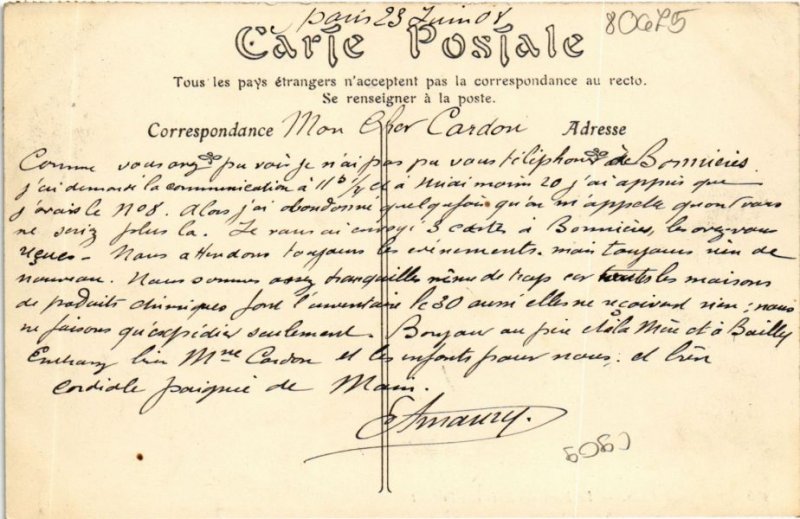 Paris 23 Juin 08
80675
Carte Postale
Tous les pays étrangers n'acceptent pas la correspondance au recto.
Se renseigner à la poste.
Correspondance Mon Cher Cardon Adresse
Comme vous avez pu voir je n'ai pas pu vous téléphoner de Bonnières.
j'ai demandé la communication à 11h 1/4 et à midi moins 20 j'ai appris que
j'avais le No 8. Alors j'ai abandonné quelquefois qu'on m'appelle quand vous
ne seriez plus là. Je vous ai envoyé 3 cartes à Bonnières, les avez-vous
reçues - Nous attendons toujours les événements. mais toujours rien de
nouveau. Nous sommes assez tranquilles même de trop car toutes les maisons
de produits chimiques font l'inventaire le 30 aussi elles ne reçoivent rien ; nous
ne faisons qu'expédier seulement. Bonjour au père et à la Mère et à Bailly
Embrassez bien Mme Cardon et les enfants pour nous, et bien
cordiale poignée de Main.
E Amaury.